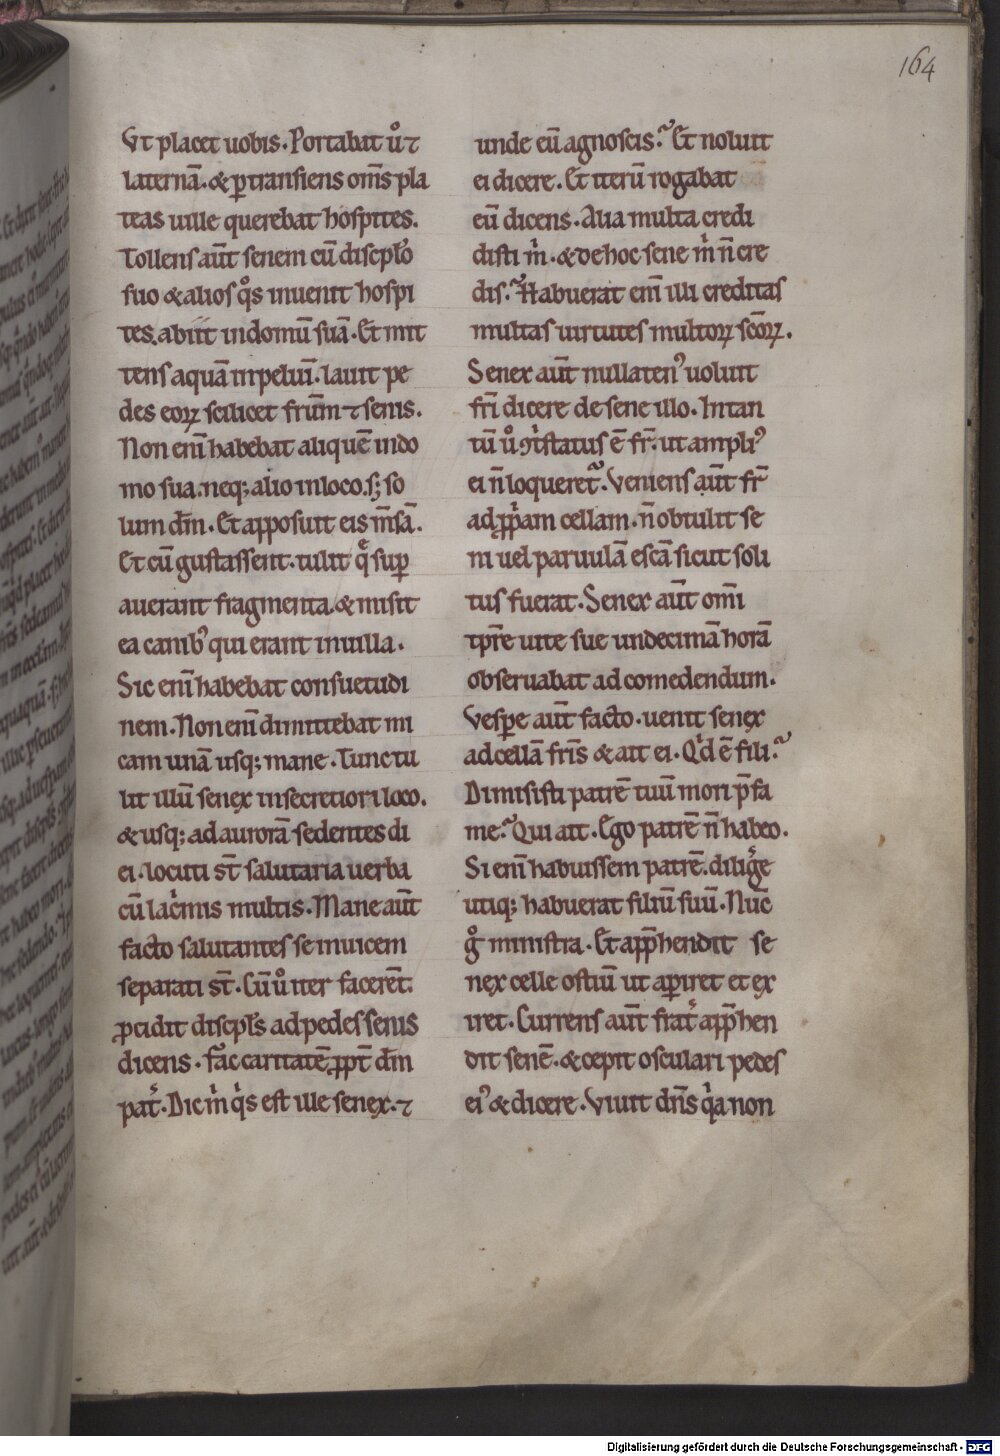 164
Vt placet uobis. Portabat ů ⁊
laternā. & ꝑtransiens om̄s pla
teas uille querebat hospites.
Tollens aūt senem cū discipło
suo & alios q̊s inuenit hospi
tes. abiit in domū suā. Et mit
tens aquā in peluī. lauit pe
des eoꝝ scilicet frūm ⁊ senis.
Non enī habebat aliquē in do
mo sua. neq; alio in loco. s; so
lum dm̄. Et apposuit eis m̄sā.
Et cū gustassent. tulit q̄ suꝑ
auerant fragmenta. & misit
ea canibꝰ qui erant in uilla.
Sic enī habebat consuetudi
nem. Non enī dimittebat mi
cam unā usq; mane. Tunc tu
lit illū senex in secretiori loco.
& usq; ad aurorā sedentes di
ei. locuti st̄ salutaria uerba
cū lac̓mis multis. Mane aūt
facto salutantes se inuicem
separati st̄. Cū ů iter facerēt.
ꝓcidit discipłs ad pedes senis
dicens. Fac caritatē ꝓpt̄ dm̄
pat̓. Dic m̓ q̓s est ille senex. ⁊
unde eū agnoscis? Et noluit
ei dicere. Et iterū rogabat
eū dicens. Alia multa credi
disti m̓. & de hoc sene m̓ n̄ cre
dis? Habuerat enī illi creditas
multas uirtutes multoꝝ sc̄oꝝ.
Senex aūt nullatenꝰ uoluit
fr̄i dicere de sene illo. In tan
tū ů ꝯt̓status ē fr̄. ut ampliꝰ
ei n̄ loqueret᷑. Veniens aūt fr̄
ad ꝓp̓am cellam. n̄ obtulit se
ni uel paruulā escā sicut soli
tus fuerat. Senex aūt om̄i
tp̄re uite sue undecimā horā
obseruabat ad comedendum.
Vespe aūt facto. uenit senex
ad cellā fr̄is & ait ei. Q̓d ē fili?
Dimisisti patrē tuū mori p̄ fa
me? Qui ait. Ego patrē n̄ habeo.
Si enī habuissem patrē. dilig̓e
utiq; habuerat filiū suū. Nūc
g̊ ministra. Et app̄hendit se
nex celle ostiū ut aꝑiret et ex
iret. Currens aūt frat̓ app̄hen
dit senē. & cepit osculari pedes
eiꝰ & dicere. Viuit dn̄s q̓a non
Digitalisierung gefördert durch die Deutsche Forschungsgemeinschaft - DFG